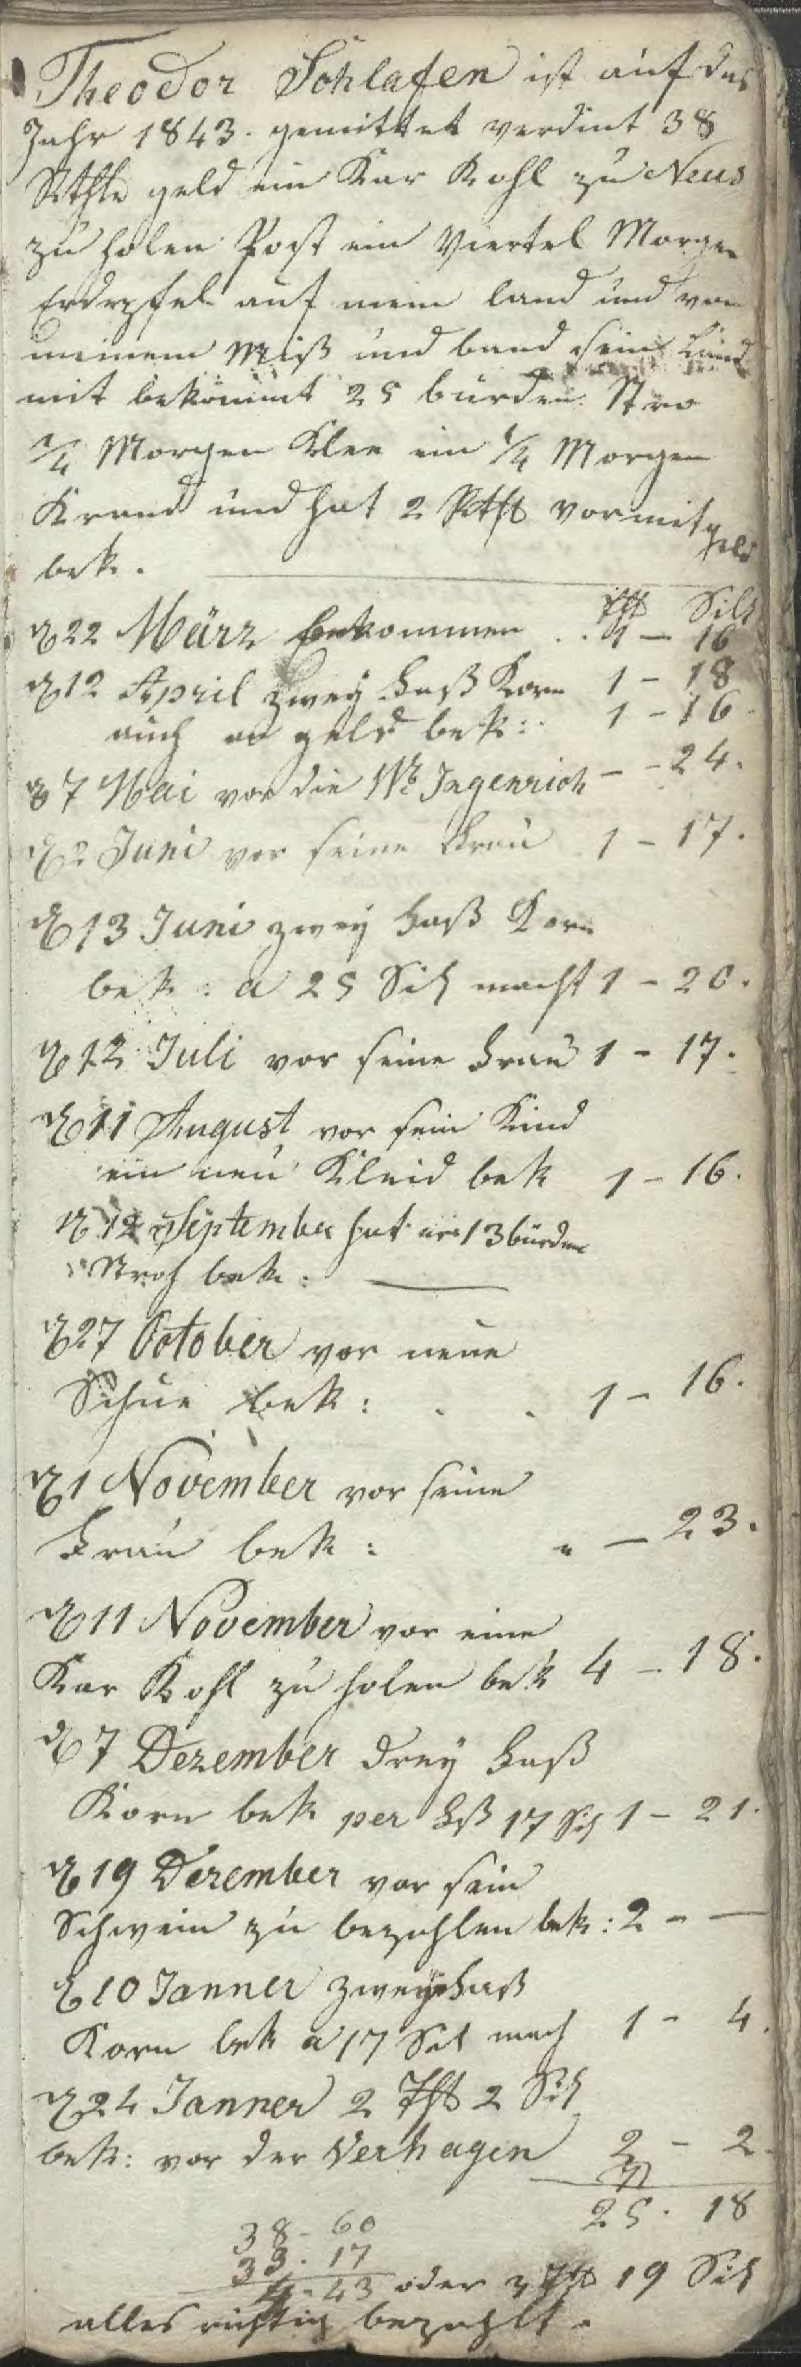 Theodor Schlafen ist auf das
Jahr 1843. gemittet verdint 38
Rthlr geld ein Kar Kohl zu Neus
zu holen Post ein Viertel Morgen
Erdepfel auf mein land und von
meinem Miß und band sein Land
mit bekommt 25 burden Stro
1/4 Morgen Klee ein 1/4 Morgen
Kraud und hat 2 Rtht vormitgeld
bek.
Tht Silb
d 22 März bekommen .. 1 – 16
d 12 April zwey Faß Korn 1 – 18
auch an geld bek: 1 – 16
d 7 Mai vor die Wb Ingenrich – – 24.
d 2 Juni vor seine Frau 1 – 17.
d 13 Juni zwey Faß Korn
bek: a 25 Sil macht 1 – 20.
d 12 Juli vor seine Frau 1 – 17.
d 11 August vor sein Kind
ein neu Kleid bek 1 – 16.
d 12 September hat er 13 bürden
Stroh bek:
d 27 October vor neue
Schue bek: . . 1 – 16.
d 1 November vor seine
Frau bek: " – 23.
d 11 November vor eine
Kar Kohl zu holen bek 4 – 18.
d 7 Dezember drey Faß
Korn bek per Fß 17 Sil 1 – 21.
d 19 Dezember vor sein
Schwein zu bezahlen bek: 2 – –
d 10 Janner zwey Faß
Korn bek a 17 Sil mach 1 – 4.
d 24 Janner 2 Tht 2 Sil
bek: vor der Verhagen 2 – 2
25. 18
38 – 60
33. 17
4 – 43 oder 3 Tht 19 Sil
alles richtig bezahlt.